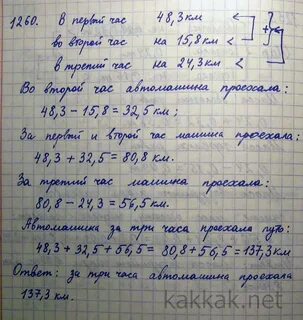 1260. В первый час 48,3 км
во второй час на 15,8 км <
в третий час на 24,3 км <
Во второй час автомашина проехала:
48,3 - 15,8 = 32,5 км;
За первый и второй час машина проехала:
48,3 + 32,5 = 80,8 км.
За третий час машина
проехала:
80,8 - 24,3 = 56,5 км.
Автомашина за три часа проехала путь:
48,3 + 32,5 + 56,5 = 80,8 + 56,5 = 137,3 км
Ответ: за три часа автомашина проехала
137,3 км.
kakkak.net